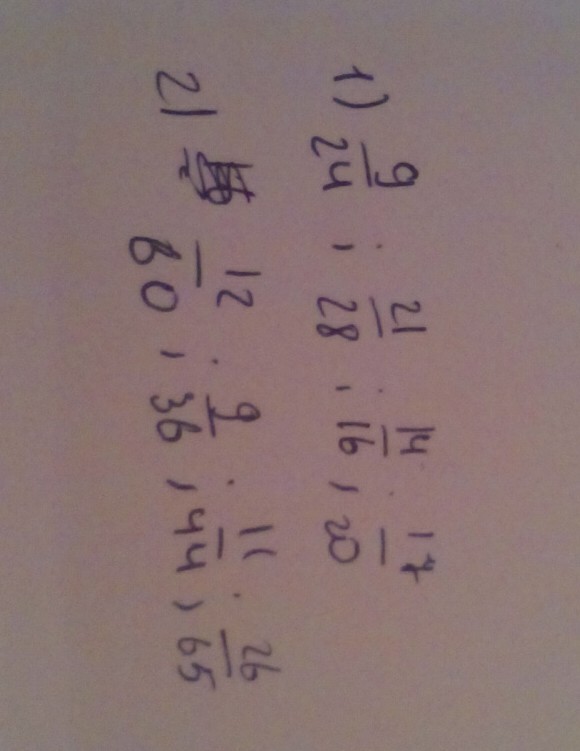 1) 9/24 ; 21/28 ; 14/16 ; 17/20
2) 12/60 ; 9/36 ; 11/44 ; 26/65